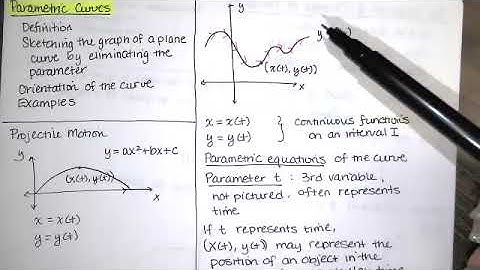 Parametric Curves
Definition
Sketching the graph of a plane
curve by eliminating the
parameter
Orientation of the curve
Examples
Projectile Motion
y
y = ax²+bx+c
(x(t), y(t))
x
x = x(t)
y = y(t)
y
y
(x(t), y(t))
x
x = x(t)
y = y(t)
} continuous functions
on an interval I
Parametric equations of the curve
Parameter t : 3rd variable,
not pictured, often represents
time
If t represents time,
(x(t), y(t)) may represent the
position of an object in the